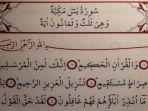 سُورَةُ يٰسٓ مَكِّيَّةٌ
وَهِيَ ثَلَاثٌ وَثَمَانُونَ اٰيَةً
بِسْمِ اللّٰهِ الرَّحْمٰنِ الرَّحِيمِ
وَالْقُرْاٰنِ الْحَكِيمِ اِنَّكَ لَمِنَ الْمُرْسَلِينَ
صِرَاطٍ مُسْتَقِيمٍ تَنْزِيلَ الْعَزِيزِ الرَّحِيمِ
مَا اُنْذِرَ اٰبَاؤُهُمْ فَهُمْ غَافِلُونَ لَقَدْ حَقَّ الْقَوْلُ